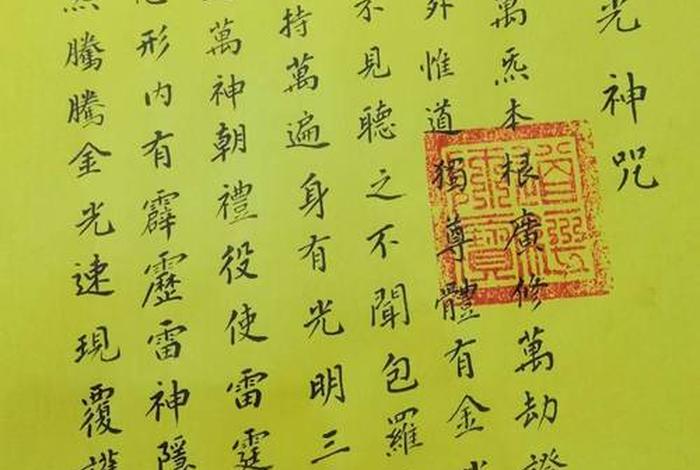 光神咒
萬炁本根廣修萬劫證
外惟道獨尊體有金
不見聽之不聞包羅
持萬遍身有光明三
萬神朝禮役使雷霆
形內有霹靂雷神隱
騰騰金光速現覆護
道經師寶